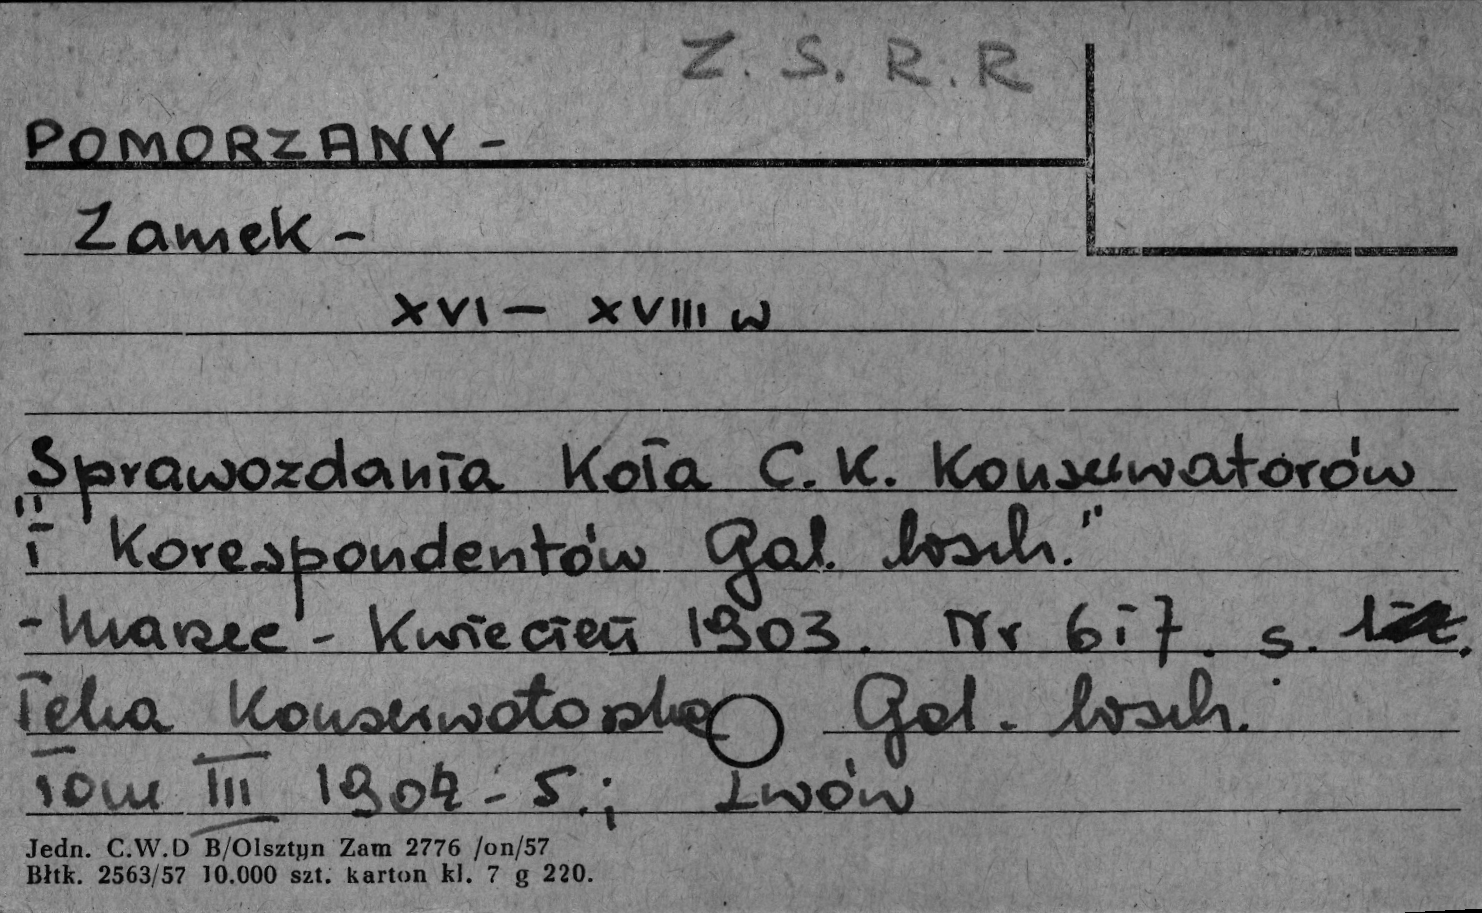 Z. S. R. R
POMORZANY -
Zamek -
XVI - XVIII w
"Sprawozdania Koła C. K. Konserwatorów
i Korespondentów Gal. wsch."
- Marzec - Kwiecień 1903. Nr 6 i 7. s.
Teka Konserwatorska Gal. wsch.
Tom III 1904 - 5.; Lwów
Jedn. C.W.D B/Olsztyn Zam 2776 /on/57
Błtk. 2563/57 10.000 szt. karton kl. 7 g 220.